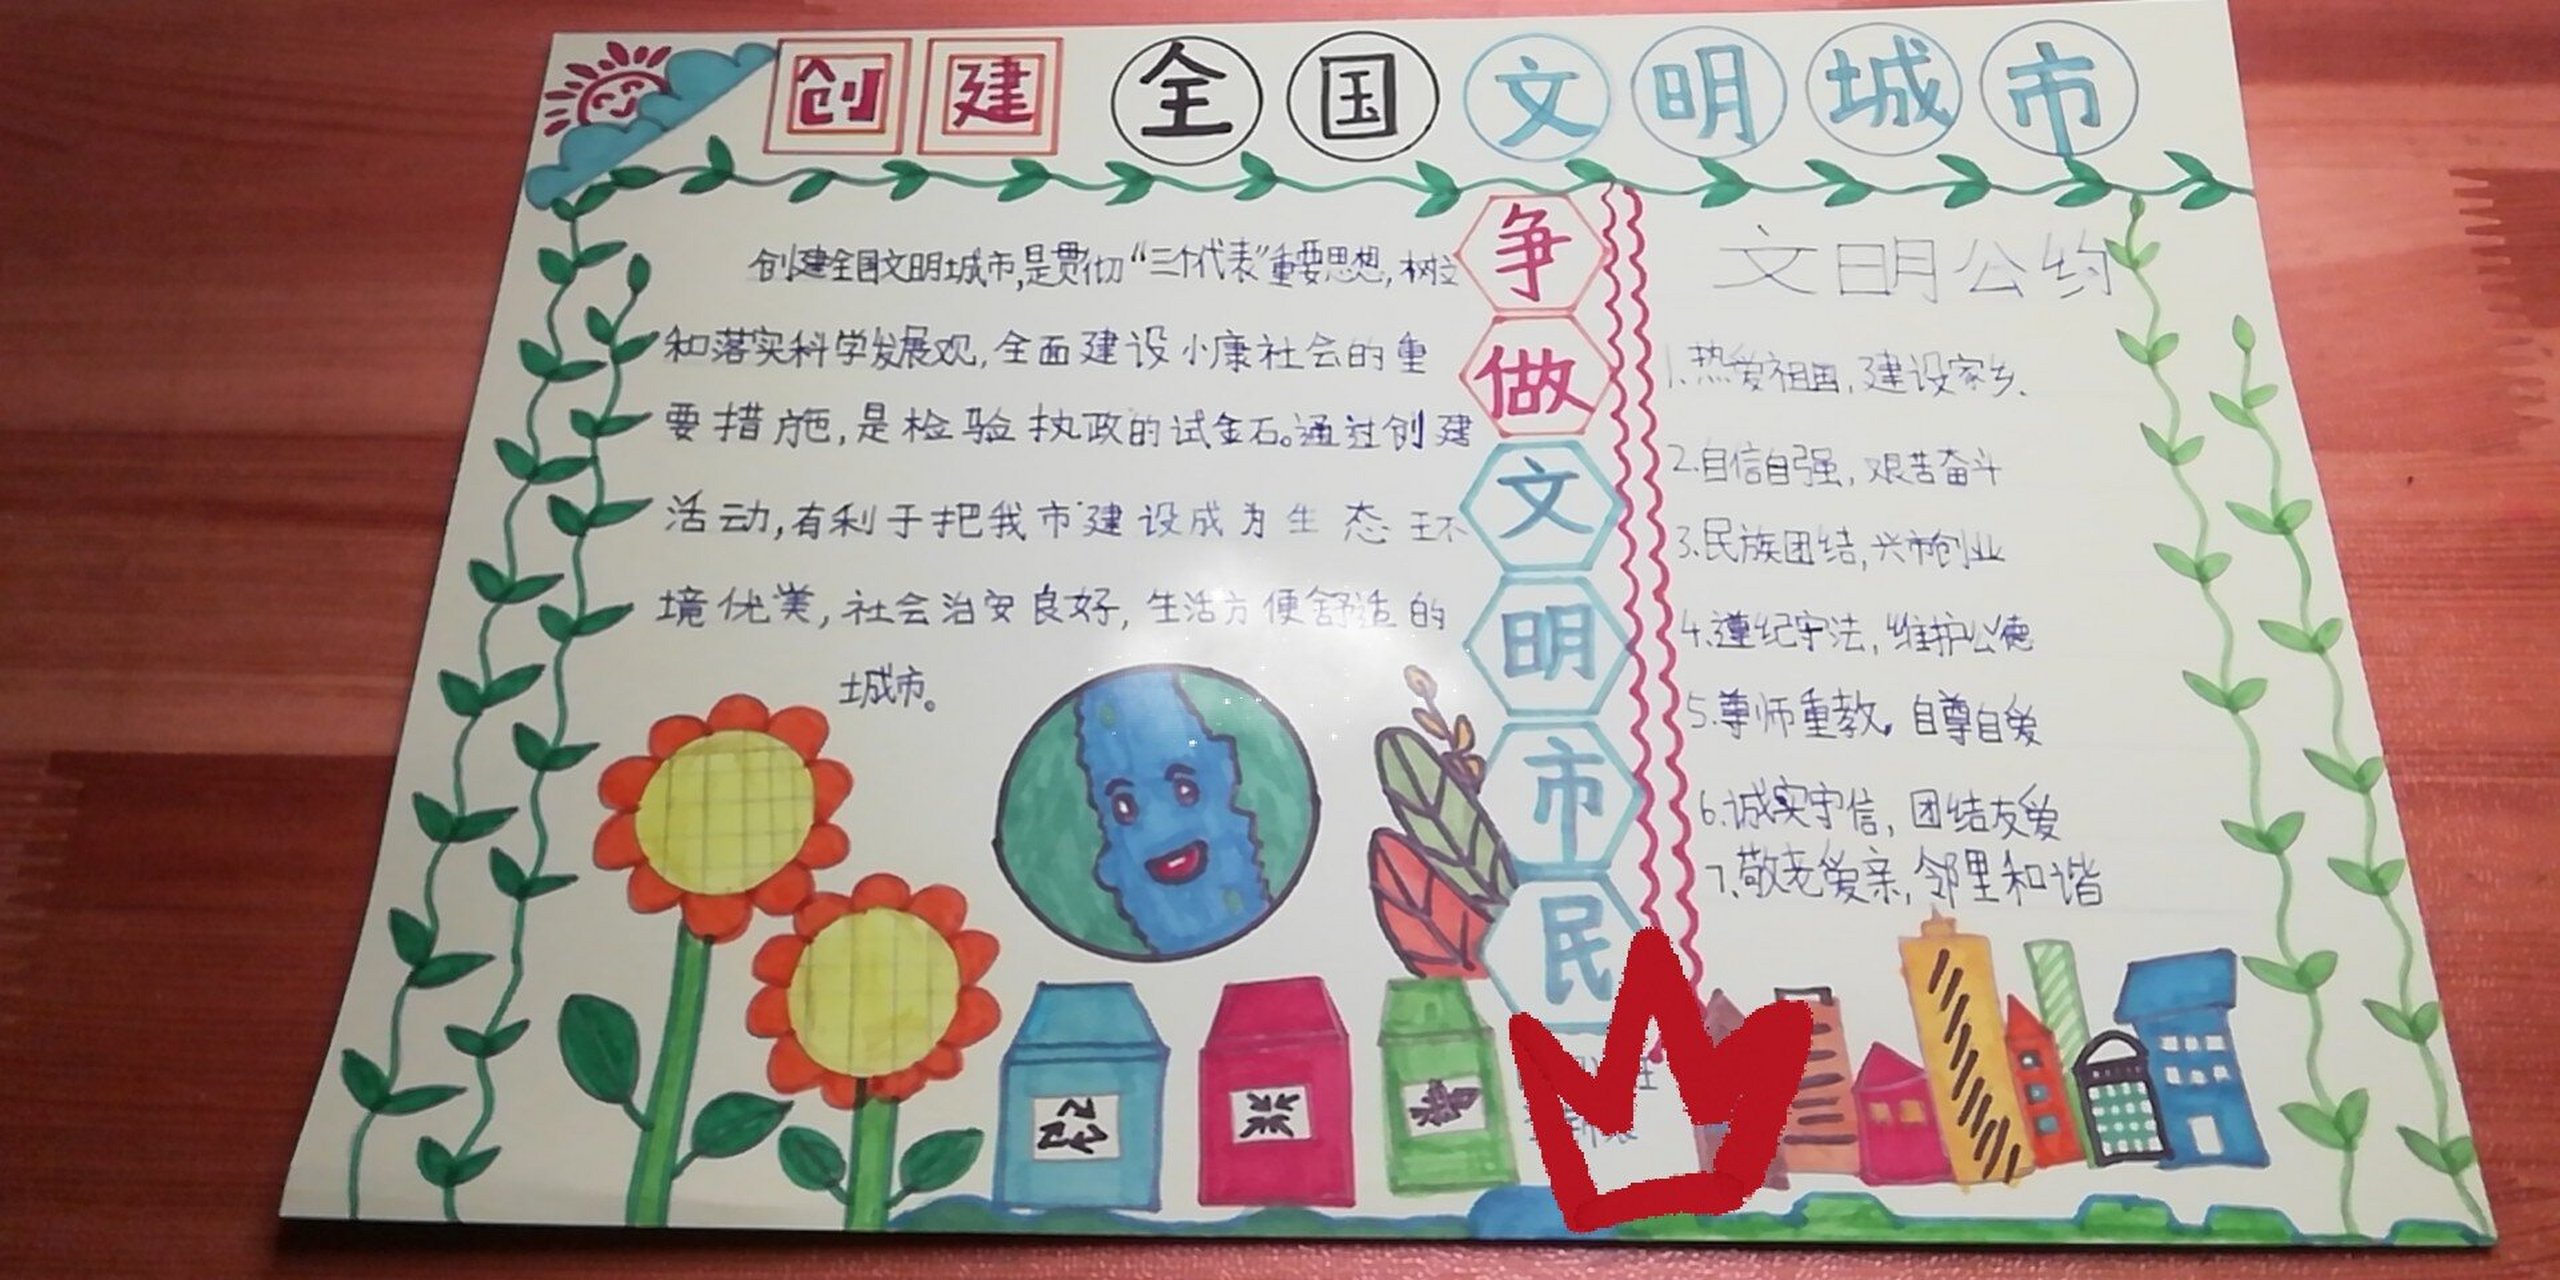 创建全国文明城市
创建全国文明城市,是贯彻“三个代表”重要思想,树立
和落实科学发展观,全面建设小康社会的重
要措施,是检验执政的试金石。通过创建
活动,有利于把我市建设成为生态环
境优美,社会治安良好,生活方便舒适的
城市。
争
做
文
明
市
民
文明公约
1.热爱祖国,建设家乡.
2.自信自强,艰苦奋斗
3.民族团结,兴市创业
4.遵纪守法,维护公德
5.尊师重教,自尊自爱
6.诚实守信,团结友爱
7.敬老爱亲,邻里和谐